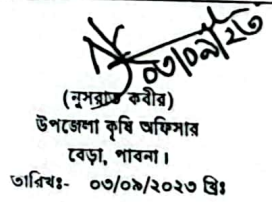 ০৩/০৯/২৩
(নুসরাত কবীর)
উপজেলা কৃষি অফিসার
বেড়া, পাবনা।
তারিখঃ- ০৩/০৯/২০২৩ খ্রিঃ